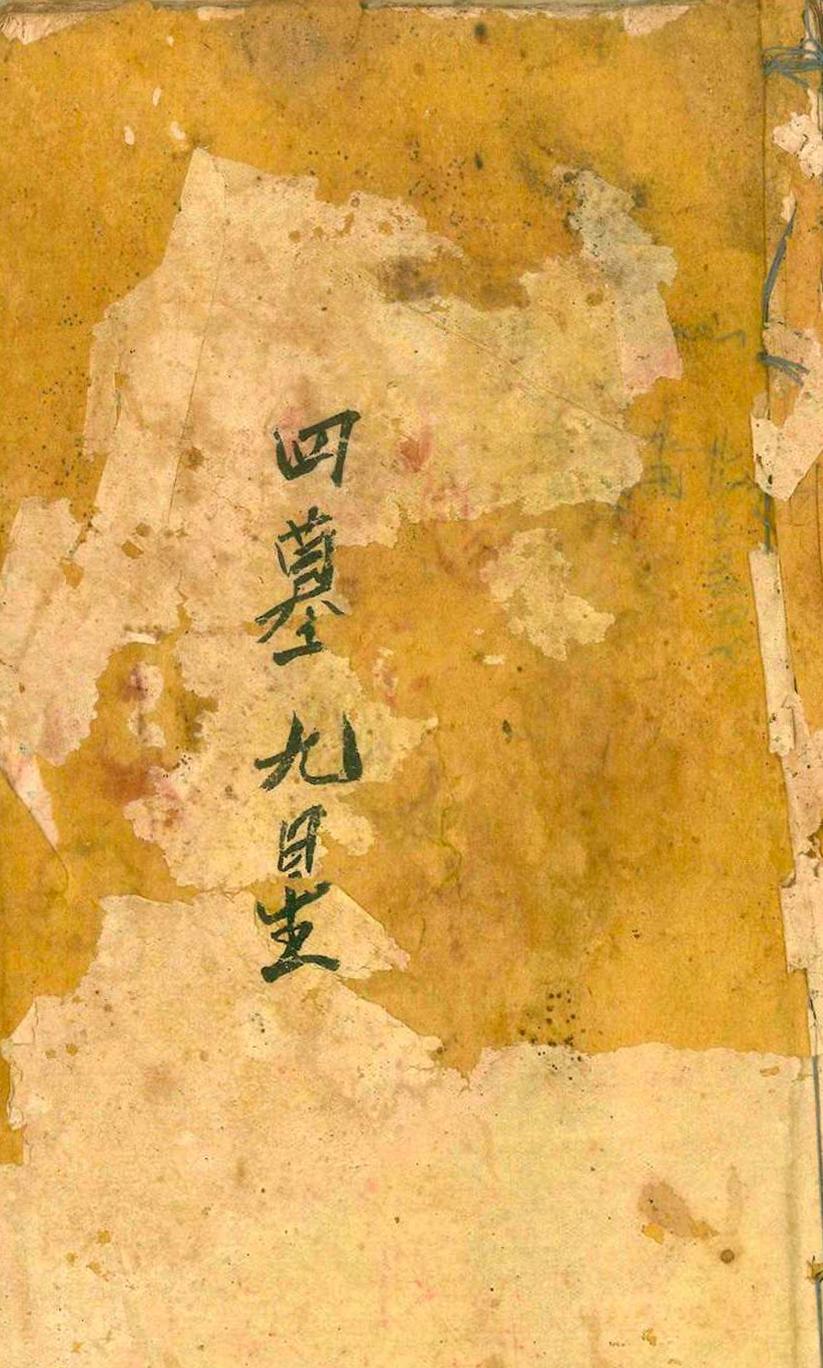 四墓九星